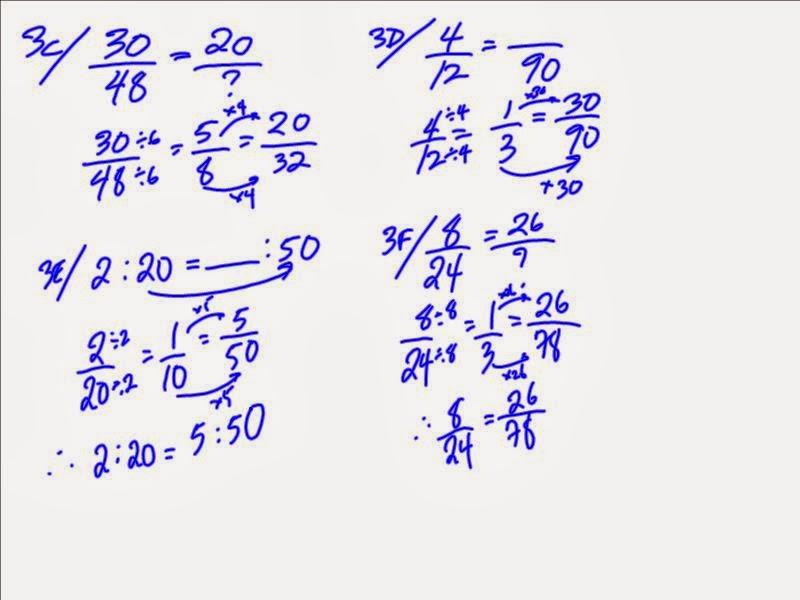 3C/ 30/48 = 20/?
30÷6/48÷6 = 5/8 = 20/32
×4
×4
3D/ 4/12 = __/90
4÷4/12÷4 = 1/3 = 30/90
×30
×30
3E/ 2:20 = ___:50
2÷2/20÷2 = 1/10 = 5/50
×5
×5
∴ 2:20 = 5:50
3F/ 8/24 = 26/?
8÷8/24÷8 = 1/3 = 26/78
×26
×26
∴ 8/24 = 26/78